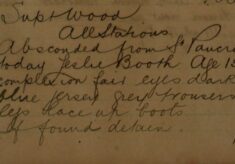 Supt Wood
All Stations
Absconded from St Pancras
today Leslie Booth Age 13
complexion fair eyes dark
blue jersey grey trousers
legs lace up boots
if found detain.